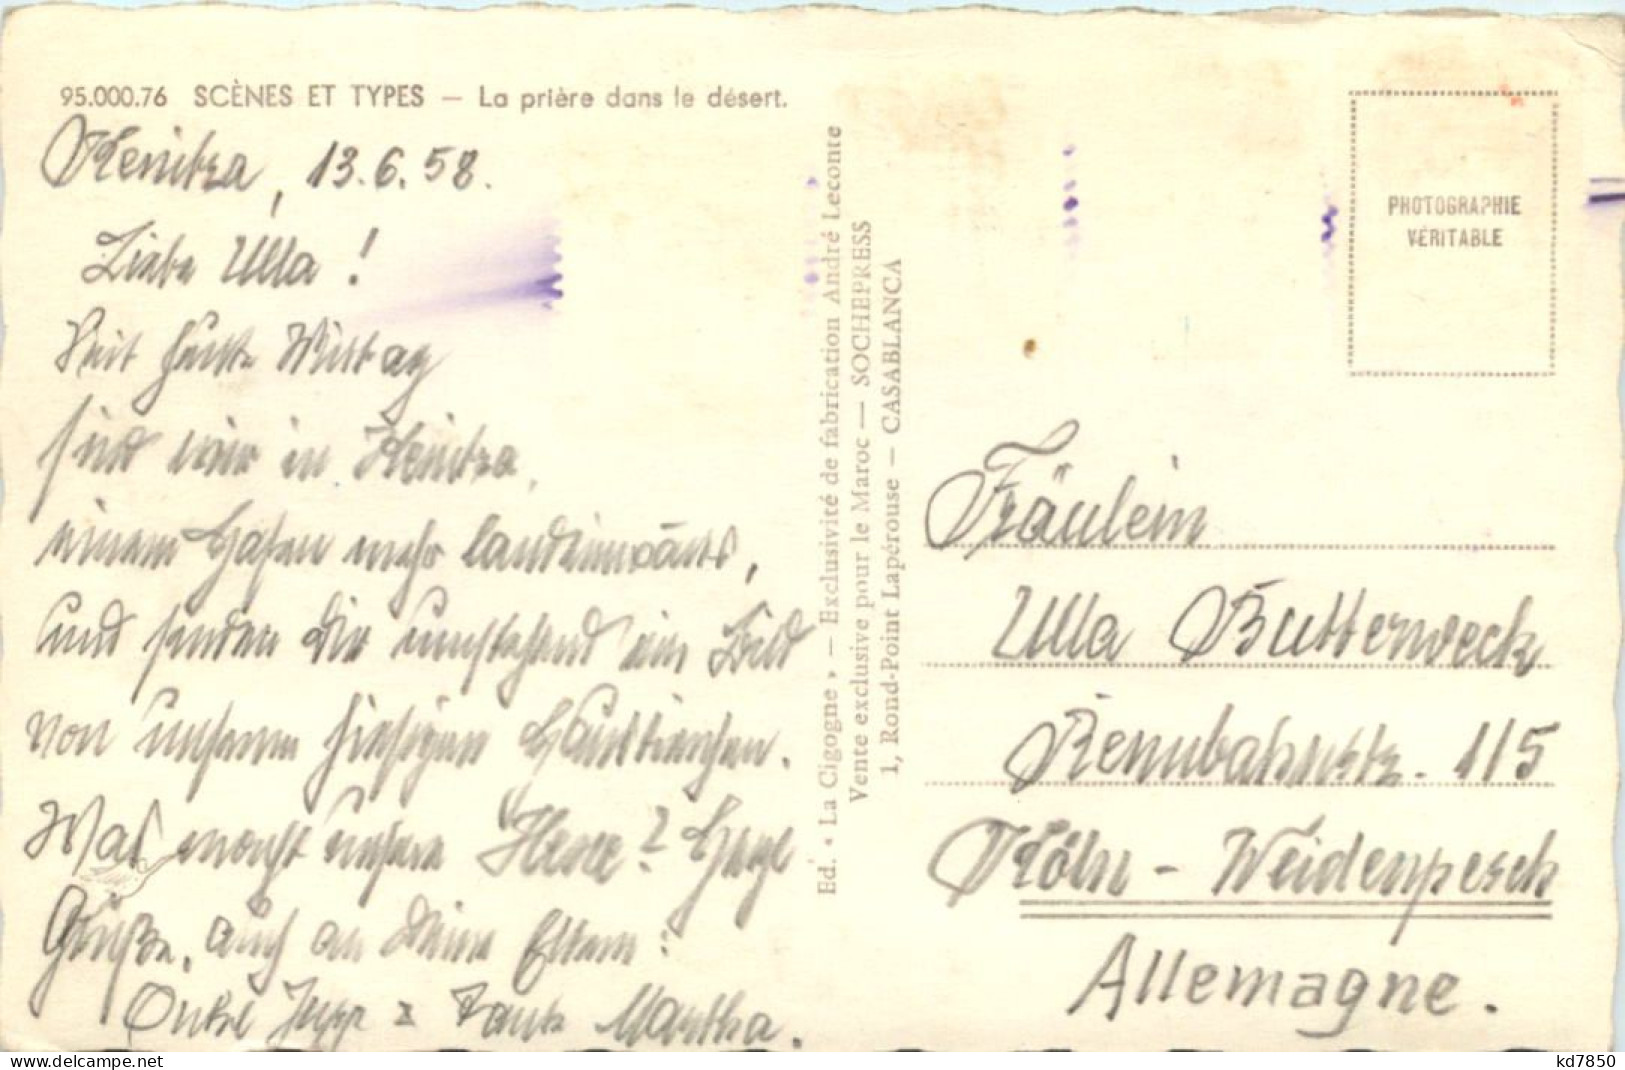 95.000.76 SCÈNES ET TYPES — La prière dans le désert.
Kenitra, 13.6.58.
Liebe Ulla!
Seit heute Mittag
sind wir in Kenitra,
einem Hafen mehr landeinwärts,
und senden Dir umstehend ein Bild
von unseren hiesigen
Was macht unsere Hexe? Hrzl.
Grüße, auch an Deine Eltern:
Onkel Jupp & Tante Martha.
Ed. « La Cigogne » — Exclusivité de fabrication André Leconte
Vente exclusive pour le Maroc — SOCHEPRESS
1, Rond-Point Lapérouse — CASABLANCA
PHOTOGRAPHIE
VÉRITABLE
Fräulein
Ulla Butterweck
Rennbahnstr. 115
Köln - Weidenpesch
Allemagne.
www.delcampe.net
kd7850